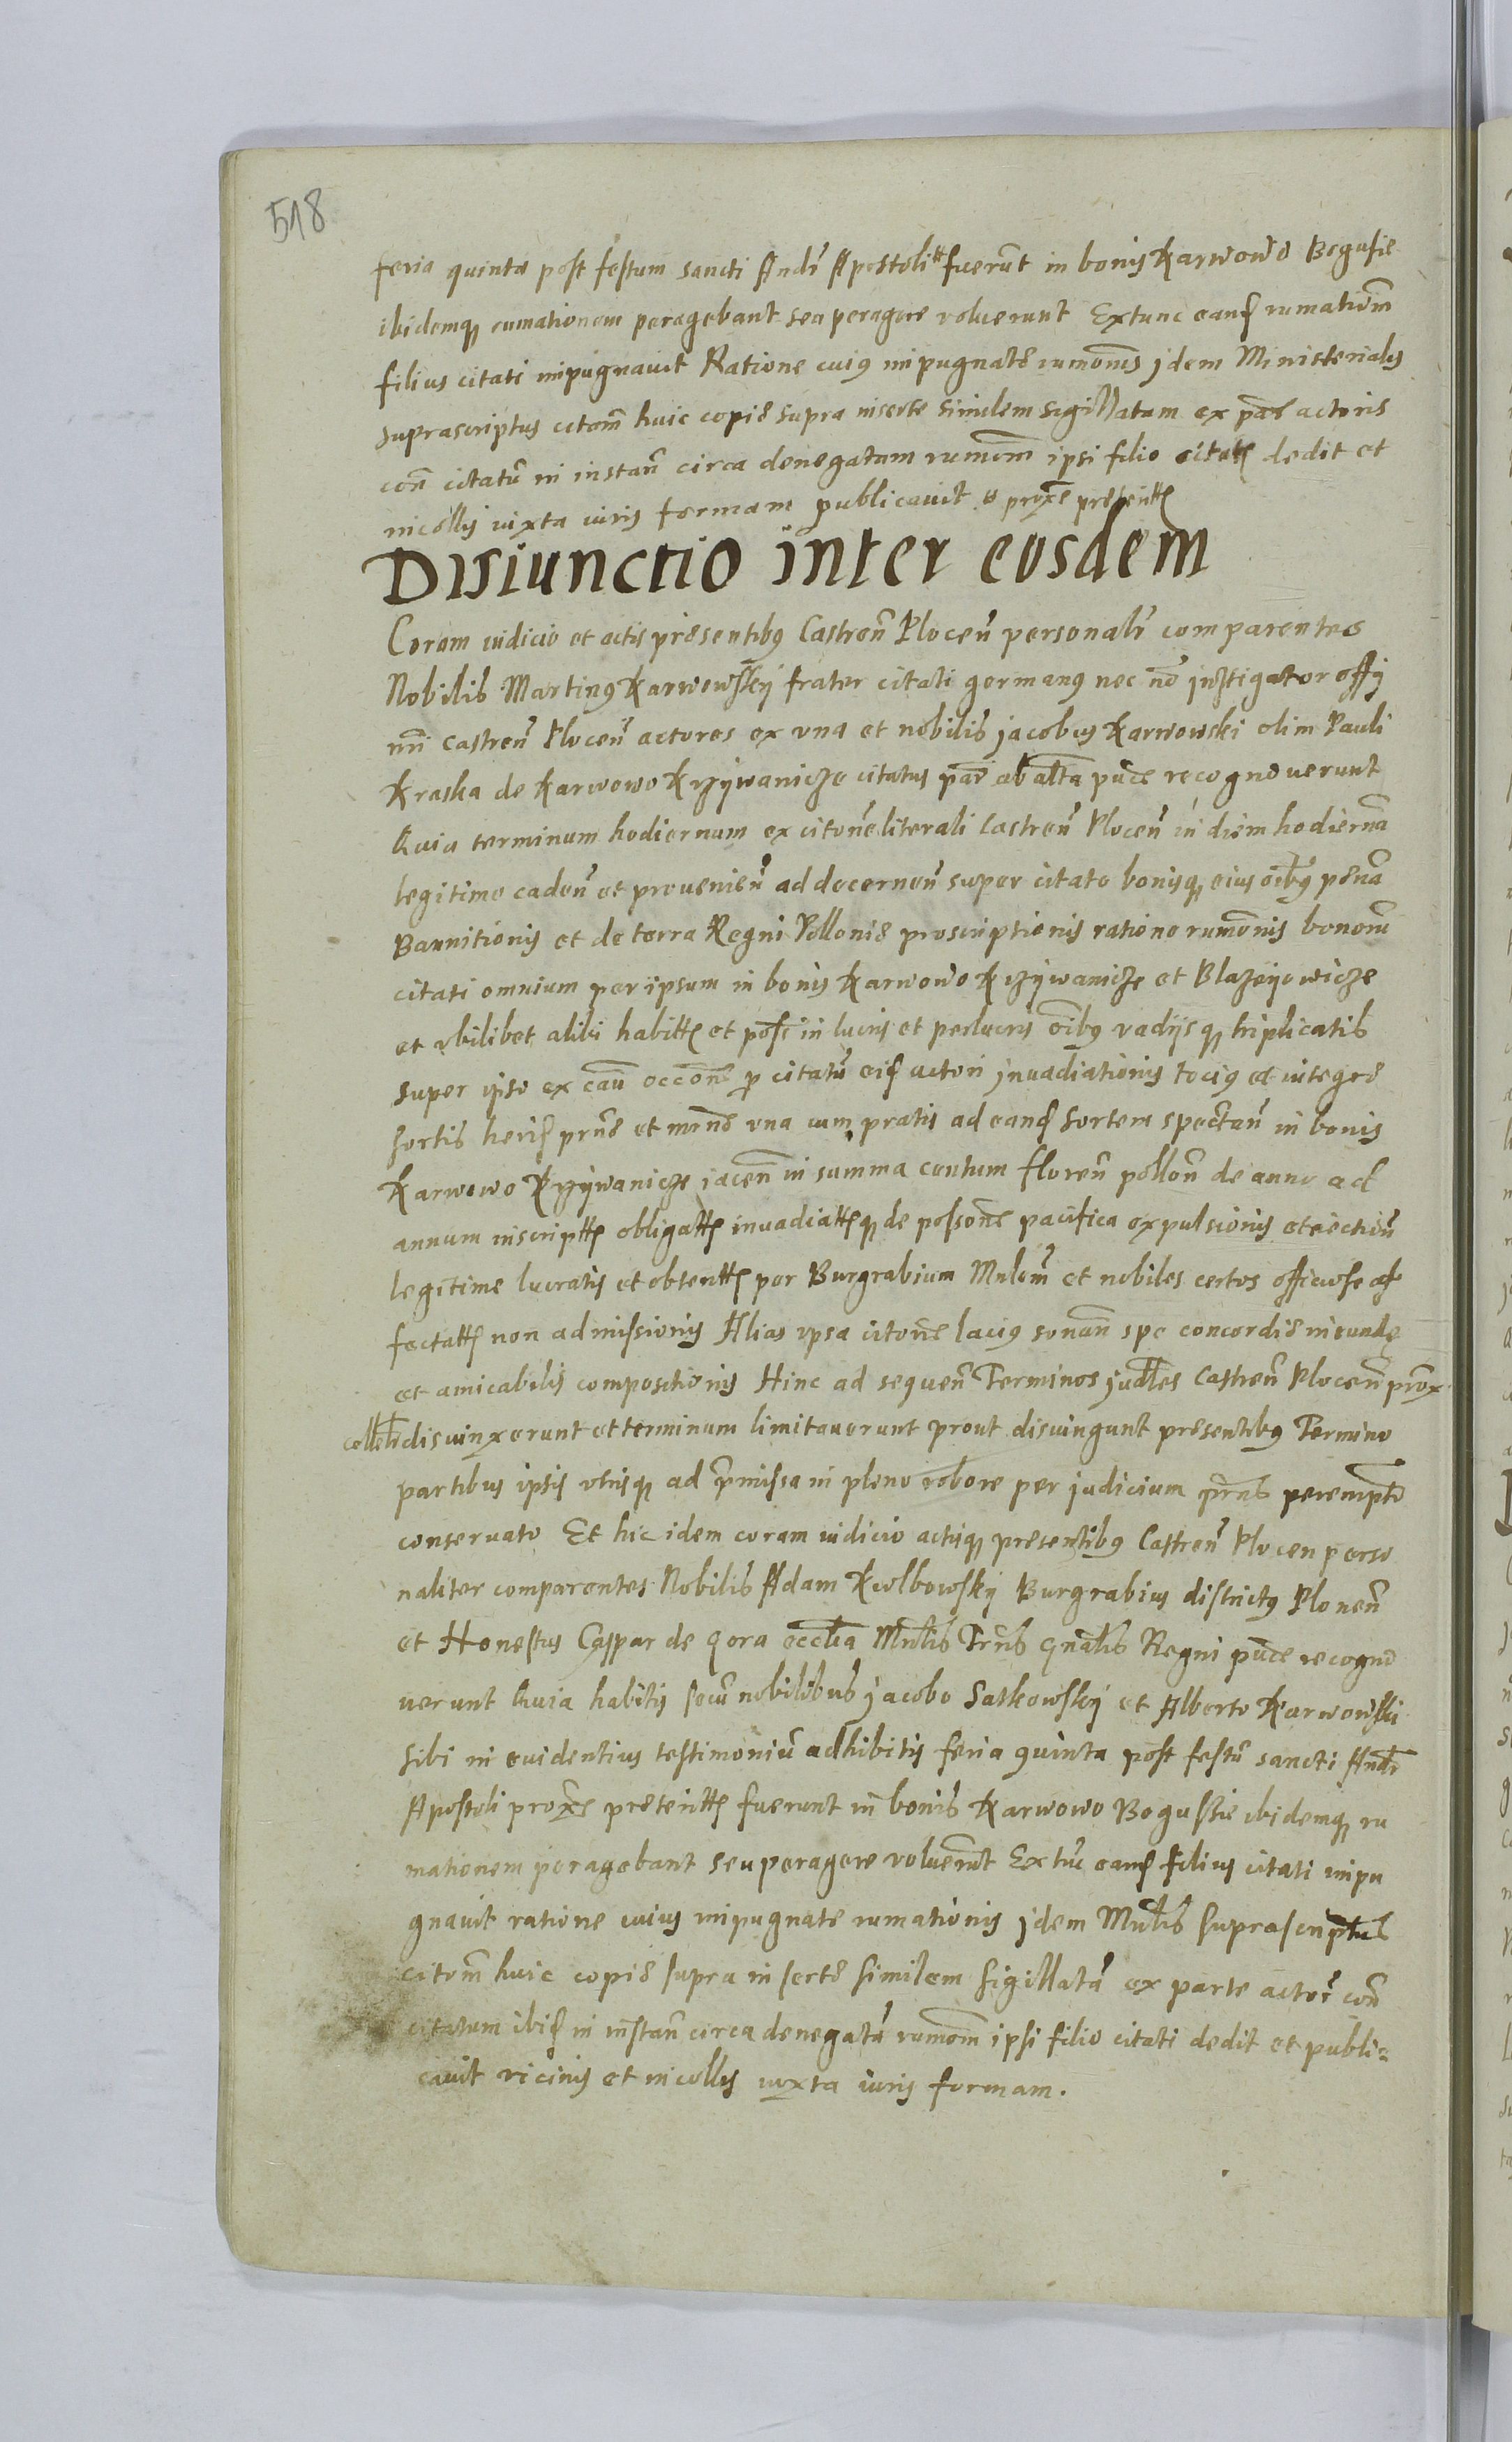 518
feria quinta post festum sancti Andr̃ Apostoli # fuerũt in bonis Karwowo Bogusie
ibidemq₃ rumationem peragebant seu peragere voluerunt Extunc eand rumatiom̃
filius citati impugnauit Ratione cuiꝰ impugnatę rumonis̃ jdem Ministerialis
suprascriptus citom̃ huic copię supra inserte similem sigillatam ex par̃ actoris
con̄ citatũ in instan̄ circa denegatam rumom̃ ipsi filio citati dedit et
incollis iuxta iuris formam publicauit # prox̃e preteritt
Disiunctio inter eosdem
Coram iudicio et actis pręsentibꝰ Castren̄ Plocen̄ personalr̃ comparentes
Nobilis Martinꝰ Karwowskij frater citati germanꝰ nec nõ jnstigator offij
nri̅ castren̄ Plocen̄ actores ex vna et nobilis jacobus Karwowski olim Pauli
Kraska de Karwowo Krzijwanicze citatus par̃ ab alt̃a pũce recognouerunt
Quia terminum hodiernum ex citoñe literali Castren̄ Plocen̄ in diem hodiernã
legitime caden̄ et prouenien̄ ad decernen̄ super citato bonisq₃ eius oĩbꝰ pęnã
Bannitionis et de terra Regni Pollonię proscriptionis ratione rumõnis bonorũ
citati omnium per ipsum in bonis Karwowo Krzijwanicze et Blazeijowicze
et vbilibet alibi habitt et poss̃ in lucris et perlucris oĩbꝰ vadijsq₃ triplicatis
super ipso ex cau̅ occone̅ p citatũ eid actori jnuadiationis tociꝰ et integrę
sortis herid prn̄ę et mrn̄ę vna cum pratis ad eand sortem spectan̄ in bonis
Karwowo Krzijwanicze iacen̄ in summa centum floren̄ pollon̄ de anno ad
annum inscriptt obligatt inuadiattq₃ de possone̅ pacifica expulsionis et eiection̄
legitime lucratis et obtentt per Burgrabium Mnlem̃ et nobiles certos officiose af
fectatt non admissionis Alias ipsa citone̅ laciꝰ sonan̄ spe concordię ineundę
et amicabilis compositionis Hinc ad sequen̄ Terminos judt̃les Castren̄ Plocen̄ prox̃
disiunxerunt et terminum limitauerunt prout disiungunt pręsentibꝰ Termino
partibus ipsis vtrisq₃ ad p̃missa in pleno robore per judicium prñs perempto̅
conseruato Et hic idem coram iudicio actisq₃ pręsentibꝰ Castren̄ Plocen perso
naliter comparentes Nobilis Adam Kwlbowskij Burgrabius districtꝰ Plonen̄
et Honestus Caspar de Gora Mnl̃is Trr̃is gnal̃is Regni pũce recogno
uerunt Quia habitis secũ nobilibus jacobo Saskowskij et Alberto Karwowski
sibi in euidentius testimoniũ adhibitis feria quinta post festũ sancti Andr̃
Apostoli prox̃e preteritt fuerunt in bonis Karwowo Bogussie ibidemq₃ ru
mationem peragebant seu peragere voluerũt Extũc eand filius citati impu
gnauit ratione cuius impugnate rumationis jdem Mnl̃is suprascriptus
citom̃ huic copię supra insertę similem sigillatã ex parte actor̃ con̄
citatum ibid in instan̄ circa denegatã rumom̃ ipsi filio citati dedit et publi=
cauit vicinis et incollis iuxta iuris formam.